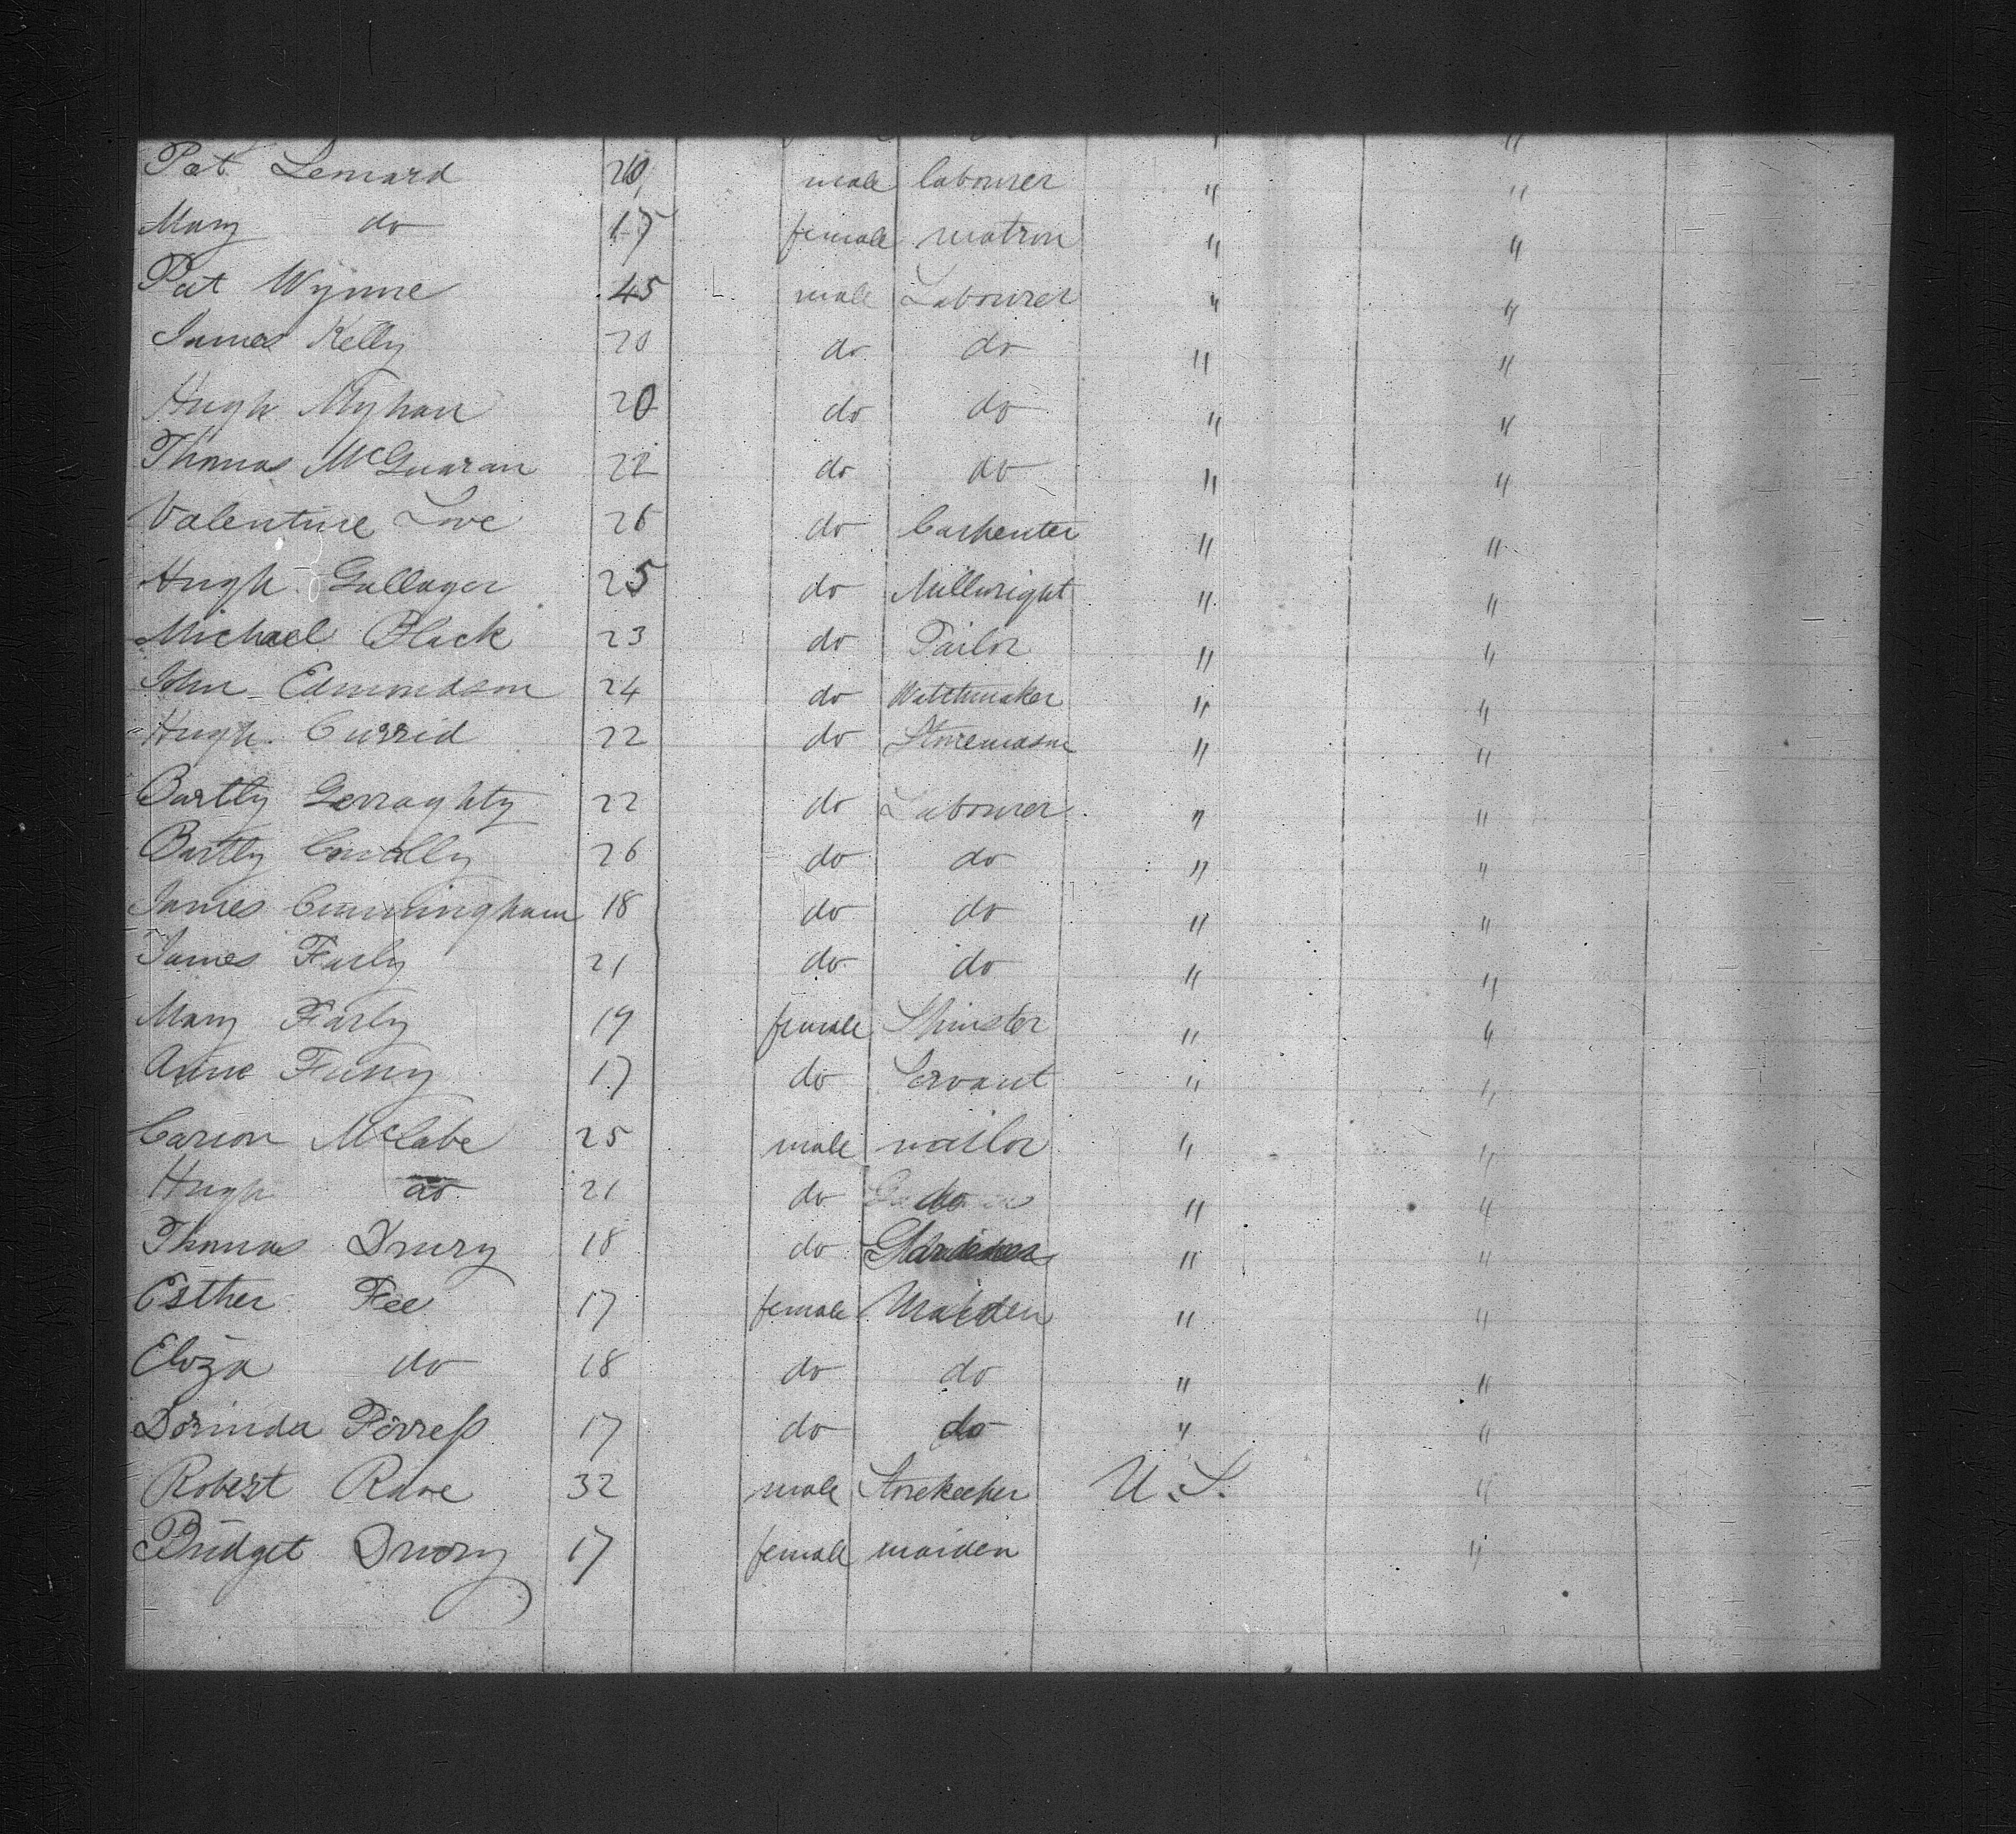 Pat Lennard 20 male labourer " "
Mary do 17 female matron " "
Pat Wynne 45 male Labourer " "
James Kelly 20 do do " "
Hugh Myhan 20 do do " "
Thomas McGuaran 22 do do " "
Valentine Love 26 do Carpenter " "
Hugh Gallager 25 do Millwright " "
Michael Black 23 do Tailor " "
John Edmondson 24 do Watchmaker " "
Hugh Currid 22 do Stonemason " "
Bartly Gerraghty 22 do Labourer " "
Bartly Conolly 26 do do " "
James Cunningham 18 do do " "
James Farly 21 do do " "
Mary Farly 19 female Spinster " "
Anne 17 do Servant " "
McCabe 25 male " "
Hugh do 21 do do " "
Thomas Drury 18 do " "
Esther Fee 17 female Maiden " "
Eliza do 18 do do " "
Dorinda 17 do do " "
Robert 32 male Storekeeper U.S. "
Bridget Drury 17 female maiden "